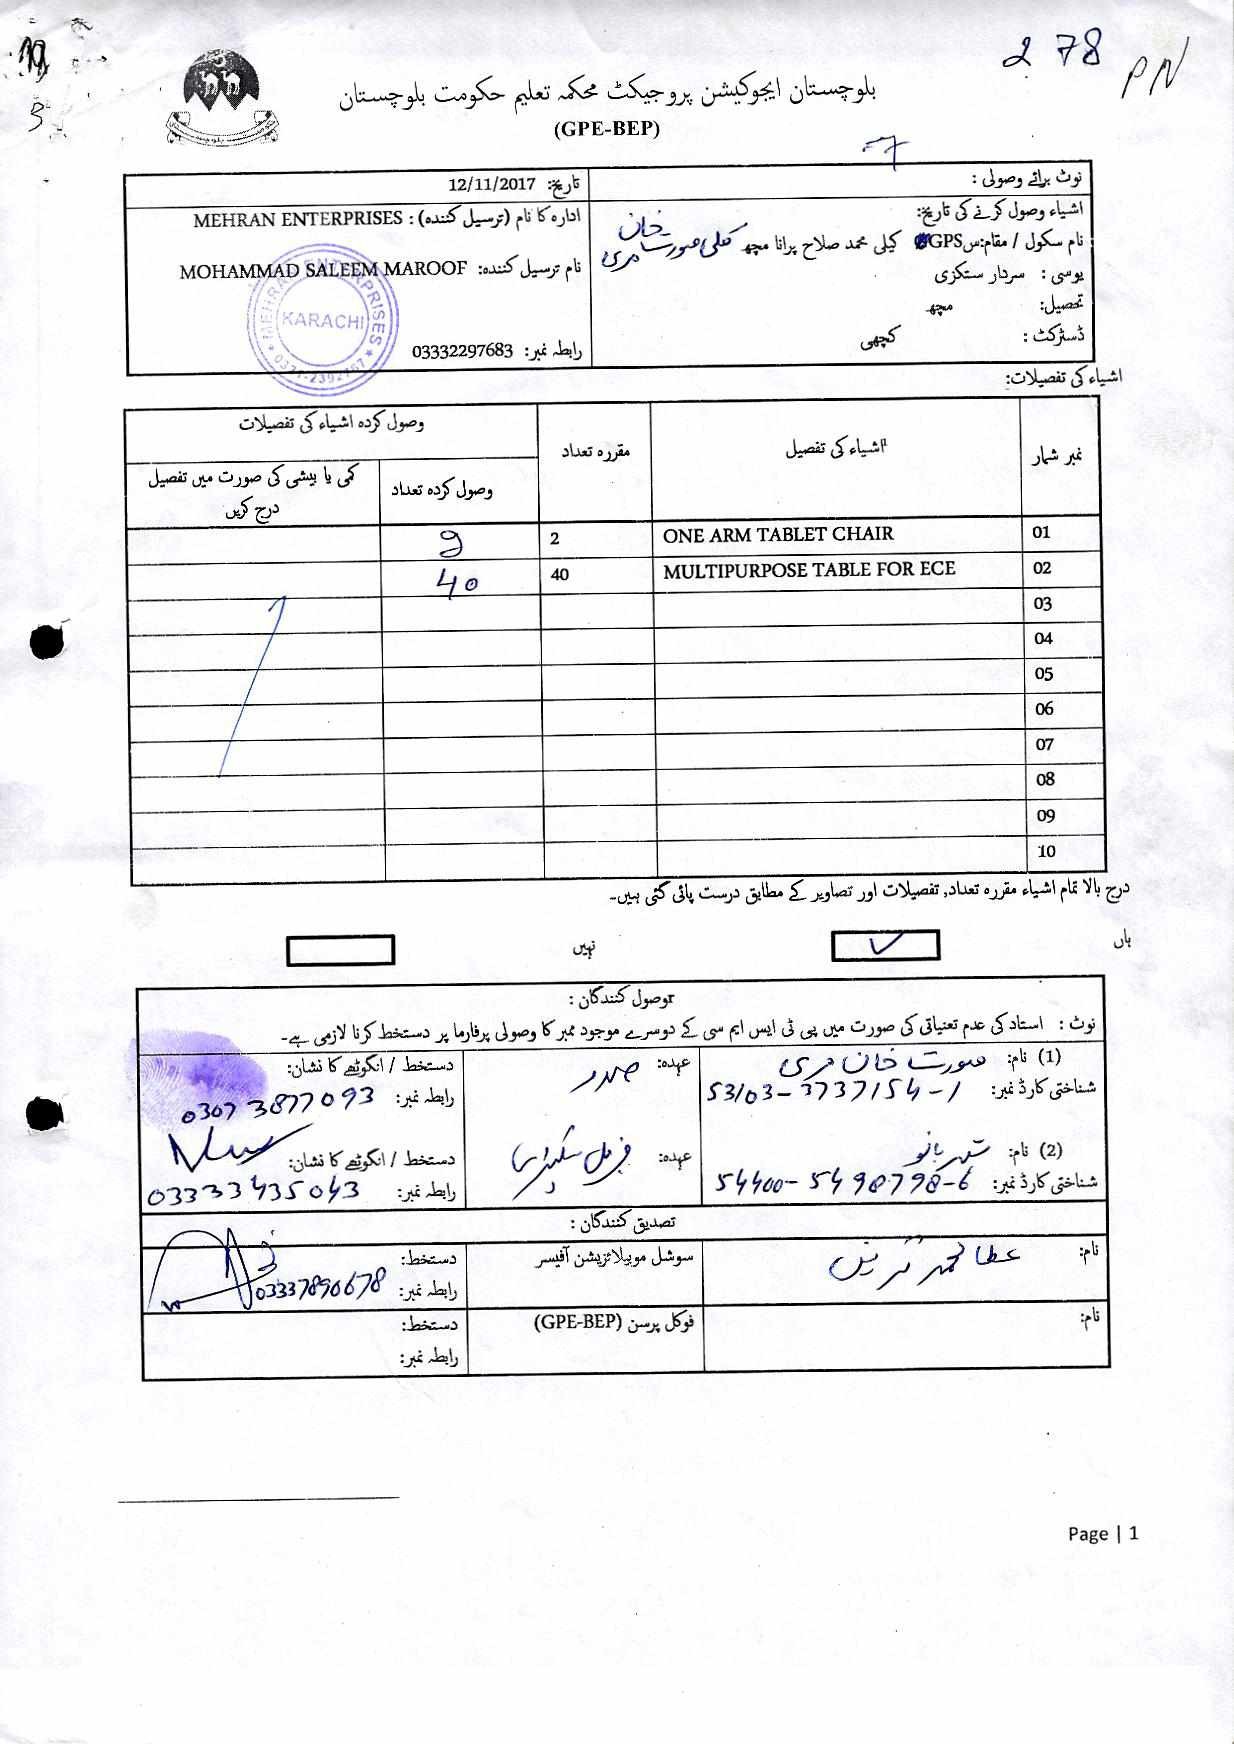 2 78
PN
3
بلوچستان ایجوکیشن پروجیکٹ محکمہ تعلیم حکومت بلوچستان
(GPE-BEP)
نوٹ برائے وصولی :
تاریخ: 12/11/2017
اشیاء وصول کرنے کی تاریخ:
ادارہ کا نام (ترسیل کنندہ) : MEHRAN ENTERPRISES
نام سکول / مقام: GPS کیلی محمد صلاح پرانا مچھ کلی صورت خان مری
نام ترسیل کنندہ: MOHAMMAD SALEEM MAROOF
یوسی : سردار ستکزی
تحصیل: مچھ
ڈسٹرکٹ : کچھی
رابطہ نمبر: 03332297683
MEHRAN ENTERPRISES
KARACHI
اشیاء کی تفصیلات:
نمبر شمار
اشیاء کی تفصیل
مقررہ تعداد
وصول کردہ اشیاء کی تفصیلات
وصول کردہ تعداد
کمی یا بیشی کی صورت میں تفصیل درج کریں
01 ONE ARM TABLET CHAIR 2 2
02 MULTIPURPOSE TABLE FOR ECE 40 40
03
04
05
06
07
08
09
10
درج بالا تمام اشیاء مقررہ تعداد, تفصیلات اور تصاویر کے مطابق درست پائی گئی ہیں۔
ہاں ✓ نہیں
وصول کنندگان :
نوٹ : استاد کی عدم تعنیاتی کی صورت میں پی ٹی ایس ایم سی کے دوسرے موجود ممبر کا وصولی پرفارما پر دستخط کرنا لازمی ہے۔
(1) نام: صورت خان مری عہدہ: صدر دستخط / انگوٹھے کا نشان:
شناختی کارڈ نمبر: 53103-3737154-1 رابطہ نمبر: 0307 3877093
(2) نام: بانو عہدہ: جنرل سیکرٹری دستخط / انگوٹھے کا نشان:
شناختی کارڈ نمبر: 54400-5498798-6 رابطہ نمبر: 03333435043
تصدیق کنندگان :
نام: عطا محمد سوشل موبیلائزیشن آفیسر دستخط:
رابطہ نمبر: 03337890678
نام: فوکل پرسن (GPE-BEP) دستخط:
رابطہ نمبر:
Page | 1